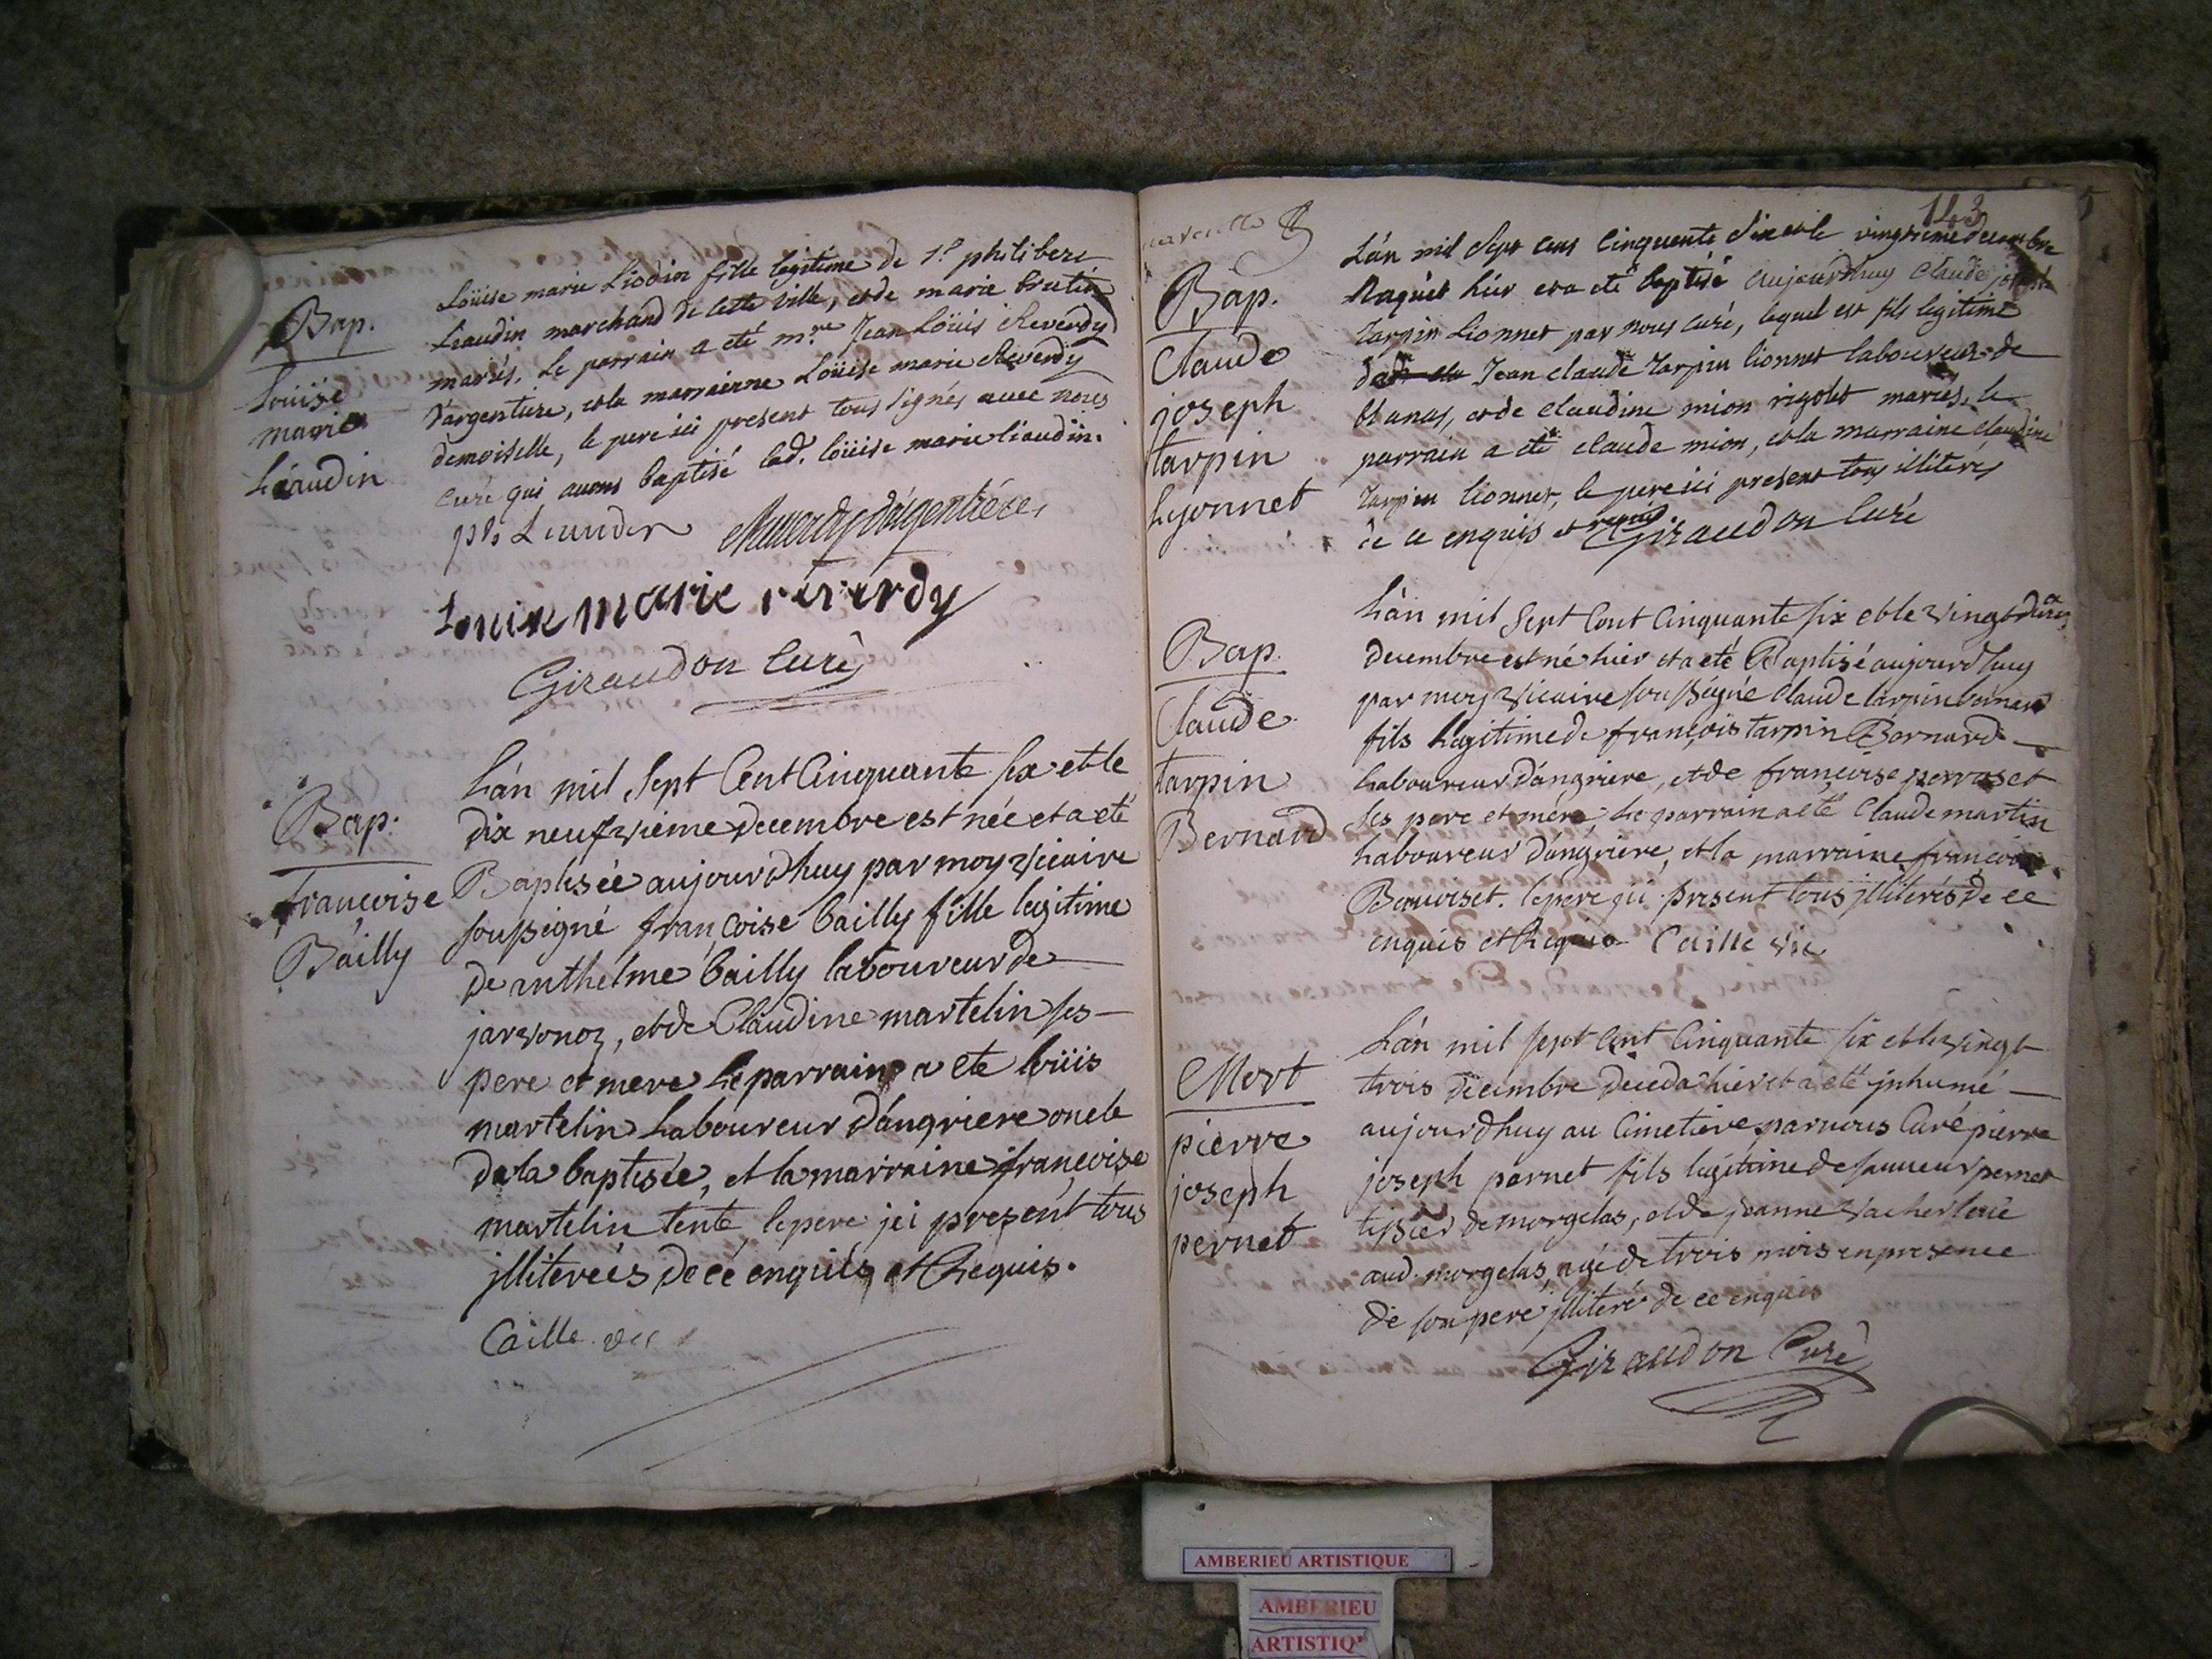 Bap.
Loüise
marie
Liaudin
Loüise marie Liodin fille legitime de Sr. philibert
Liaudin marchand de cette ville, et de marie brutin
mariés. Le parrain a eté mre. Jean Loüis Reverdy
d'argentiere, et la marrainne Loüise marie Reverdy
demoiselle, le pere ici present tous signés avec nous
curé qui avons baptisé lad. loüise marie liaudin.
ph Liaudin Reverdy d'argentiere
Louise marie reverdy
Giraudon Curé
Bap.
francoise
Bailly
L'an mil sept Cent Cinquante six et le
dix neufvieme decembre est née et a eté
Baptisée aujourdhuy par moy vicaire
soussigné francoise bailly fille legitime
de anthelme bailly laboureur de
jarvonoz, et de Claudine martelin ses
pere et mere Le parrain a ete loüis
martelin Laboureur d'angriere oncle
de la baptisée, et la marraine françoise
martelin tente le pere ici present tous
illiterées de ce enquis et Requis.
Caille vic
143
Bap.
Claude
joseph
tarpin
Lyonnet
L'an mil sept cens cinquente six et le vingtieme decembre
Naquit hier et a eté baptisé aujourdhuy Claude joseph
tarpin Lionnet par nous curé, lequel est fils legitime
de Jean claude tarpin lionnet laboureur de
blanas, et de claudine mion rigolet mariés, le
parrain a eté claude mion, et la marraine claudine
tarpin lionnet, le pere ici present tous illiterés
de ce enquis et requis. Giraudon Curé
Bap.
Claude
tarpin
Bernard
L'an mil sept Cent Cinquante six et le vingt deux
decembre est né hier et a eté Baptisé aujourdhuy
par moy vicaire soussigné Claude tarpin bernard
fils legitime de françois tarpin Bernard
Laboureur d'angriere, et de françoise perraset
ses pere et mére; Le parrain a eté Claude martin
Laboureur d'angriere, et la marraine françoise
Beauviset. le pere ici present tous illiterés de ce
enquis et Requis Caille vic
Mort
pierre
joseph
pernet
L'an mil sept Cent Cinquante six et le vingt
trois decembre deceda hier et a eté inhumé
aujourdhuy au Cimetiere par nous Curé pierre
joseph parnet fils legitime de sauveur pernet
tissier de morgelas, et de jeanne vacher
aud. morgelas, agé de trois mois en presence
de son pere illiteré de ce enquis
Giraudon Curé
AMBERIEU ARTISTIQUE
AMBERIEU
ARTISTIQ